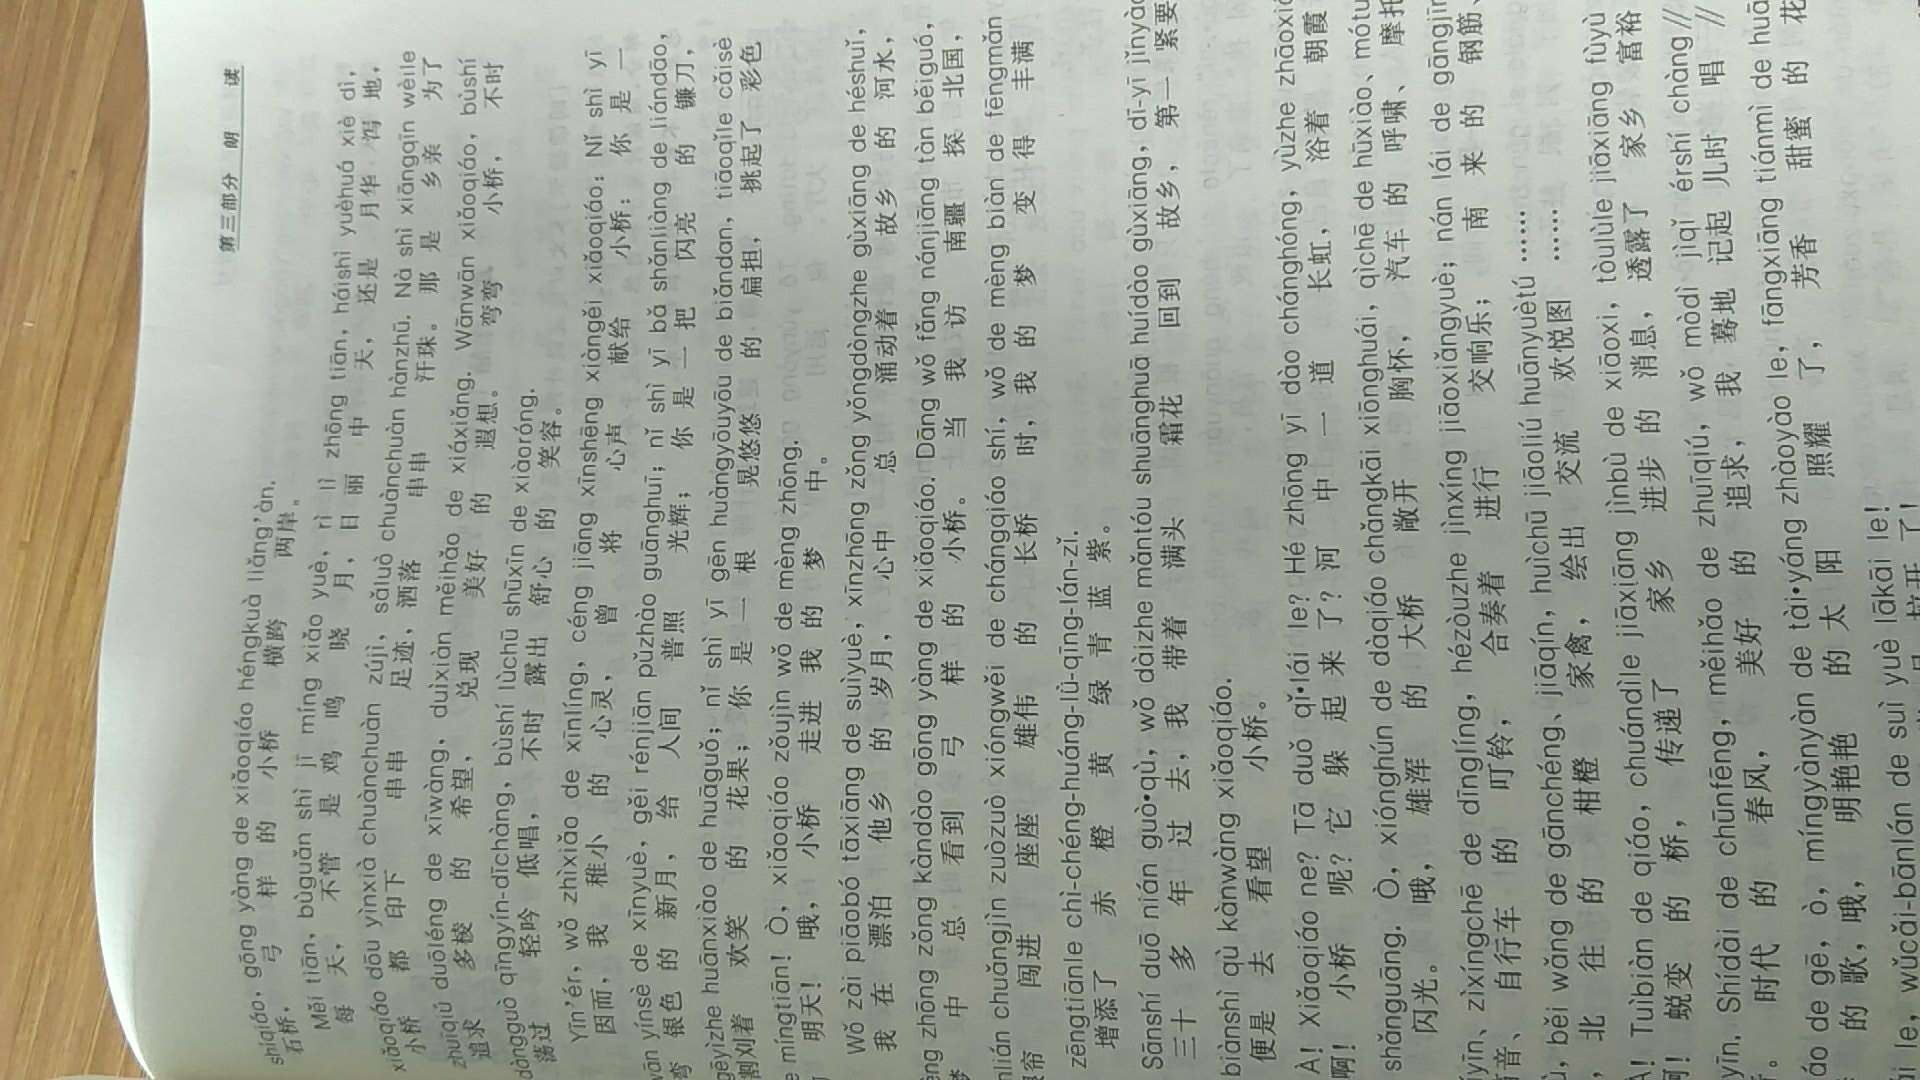 第三部分 朗 读
shíqiáo, gōng yàng de xiǎoqiáo héngkuà liǎng'àn.
石桥, 弓 样 的 小桥 横跨 两岸。
Měi tiān, bùguǎn shì jī míng xiǎo yuè, rì lì zhōng tiān, háishì yuèhuá xiè dì,
每 天, 不管 是 鸡 鸣 晓 月, 日 丽 中 天, 还是 月华 泻 地,
xiǎoqiáo dōu yìnxià chuànchuàn zújì, sǎluò chuànchuàn hànzhū. Nà shì xiāngqīn wèile
小桥 都 印下 串串 足迹, 洒落 串串 汗珠。 那 是 乡亲 为了
zhuīqiú duōléng de xīwàng, duìxiàn měihǎo de xiáxiǎng. Wānwān xiǎoqiáo, bùshí
追求 多棱 的 希望, 兑现 美好 的 遐想。 弯弯 小桥, 不时
dàngguò qīngyín-dīchàng, bùshí lùchū shūxīn de xiàoróng.
荡过 轻吟 低唱, 不时 露出 舒心 的 笑容。
Yīn'ér, wǒ zhìxiǎo de xīnlíng, céng jiāng xīnshēng xiàngěi xiǎoqiáo: Nǐ shì yī
因而, 我 稚小 的 心灵, 曾 将 心声 献给 小桥: 你 是 一
wān yínsè de xīnyuè, gěi rénjiān pǔzhào guānghuī; nǐ shì yī bǎ shǎnliàng de liándāo,
弯 银色 的 新月, 给 人间 普照 光辉; 你 是 一 把 闪亮 的 镰刀,
gēyìzhe huānxiào de huāguǒ; nǐ shì yī gēn huàngyōuyōu de biǎndan, tiāoqǐle cǎisè
割刈着 欢笑 的 花果; 你 是 一 根 晃悠悠 的 扁担, 挑起了 彩色
e míngtiān! Ò, xiǎoqiáo zǒujìn wǒ de mèng zhōng.
明天! 哦, 小桥 走进 我 的 梦 中。
Wǒ zài piāobó tāxiāng de suìyuè, xīnzhōng zǒng yǒngdòngzhe gùxiāng de héshuǐ,
我 在 漂泊 他乡 的 岁月, 心中 总 涌动着 故乡 的 河水,
èng zhōng zǒng kàndào gōng yàng de xiǎoqiáo. Dāng wǒ fǎng nánjiāng tàn běiguó,
梦 中 总 看到 弓 样 的 小桥。 当 我 访 南疆 探 北国,
nlián chuǎngjìn zuòzuò xióngwěi de chángqiáo shí, wǒ de mèng biàn de fēngmǎn
眼帘 闯进 座座 雄伟 的 长桥 时, 我 的 梦 变 得 丰满
zēngtiānle chì-chéng-huáng-lǜ-qīng-lán-zǐ.
增添了 赤 橙 黄 绿 青 蓝 紫。
Sānshí duō nián guò•qù, wǒ dàizhe mǎntóu shuānghuā huídào gùxiāng, dì-yī jǐnyào
三十 多 年 过 去, 我 带着 满头 霜花 回到 故乡, 第一 紧要
biànshì qù kànwàng xiǎoqiáo.
便是 去 看望 小桥。
À! Xiǎoqiáo ne? Tā duǒ qǐ•lái le? Hé zhōng yī dào chánghóng, yùzhe zhāoxiá
啊! 小桥 呢? 它 躲 起 来 了? 河 中 一 道 长虹, 浴着 朝霞
shǎnguāng. Ò, xiónghún de dàqiáo chǎngkāi xiōnghuái, qìchē de hūxiào、mótu
闪光。 哦, 雄浑 的 大桥 敞开 胸怀, 汽车 的 呼啸、 摩托
íyīn、zìxíngchē de dīnglíng, hézòuzhe jìnxíng jiāoxiǎngyuè; nán lái de gāngjīn、
笛音、 自行车 的 叮铃, 合奏着 进行 交响乐; 南 来 的 钢筋、
ù, běi wǎng de gānchéng、jiāqín, huìchū jiāoliú huānyuètú……
, 北 往 的 柑橙 家禽, 绘出 交流 欢悦图……
À! Tuìbiàn de qiáo, chuándìle jiāxiāng jìnbù de xiāoxi, tòulùle jiāxiāng fùyù
啊! 蜕变 的 桥, 传递了 家乡 进步 的 消息, 透露了 家乡 富裕
yīn. Shídài de chūnfēng, měihǎo de zhuīqiú, wǒ mòdì jìqǐ érshí chàng//
。 时代 的 春风, 美好 的 追求, 我 蓦地 记起 儿时 唱 //
áo de gē, ò, míngyànyàn de tài•yáng zhàoyào le, fāngxiāng tiánmì de huā
的 歌, 哦, 明艳艳 的 太 阳 照耀 了, 芳香 甜蜜 的 花
ái le, wǔcǎi-bānlán de suì yuè lākāi le!
月 拉开 了!